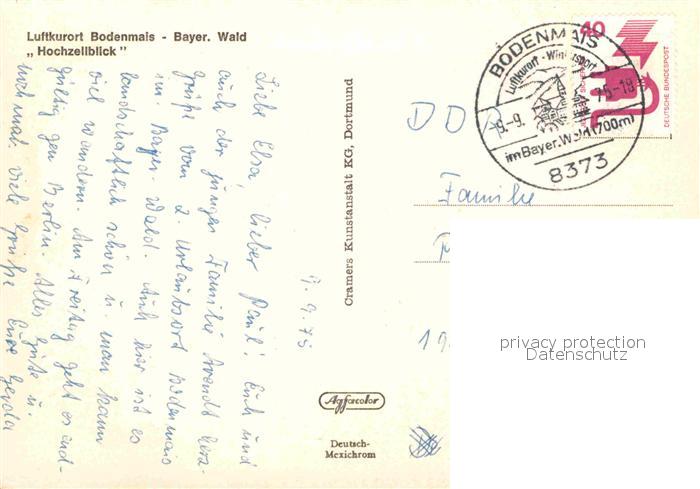 Luftkurort Bodenmais - Bayer. Wald
„Hochzellblick"
7.9.75
Liebe Elsa, lieber Paul! Euch und
auch der jungen Familie Arendt herz-
Grüße vom 2. Urlaubsort Bodenmais
im Bayer. Wald. Auch hier ist es
landschaftlich schön u. man kann
viel wandern. Am Freitag geht es end-
gültig gen Berlin. Alles Gute u.
nochmal viele Grüße Eure Gerda
Cramers Kunstanstalt KG, Dortmund
Agfacolor
Deutsch-
Mexichrom
40
DEUTSCHE BUNDESPOST
BODENMAIS
Luftkurort - Wintersport
9.-9.75-18
im Bayer. Wald (700m)
8373
DDR
Familie
19
privacy protection
Datenschutz